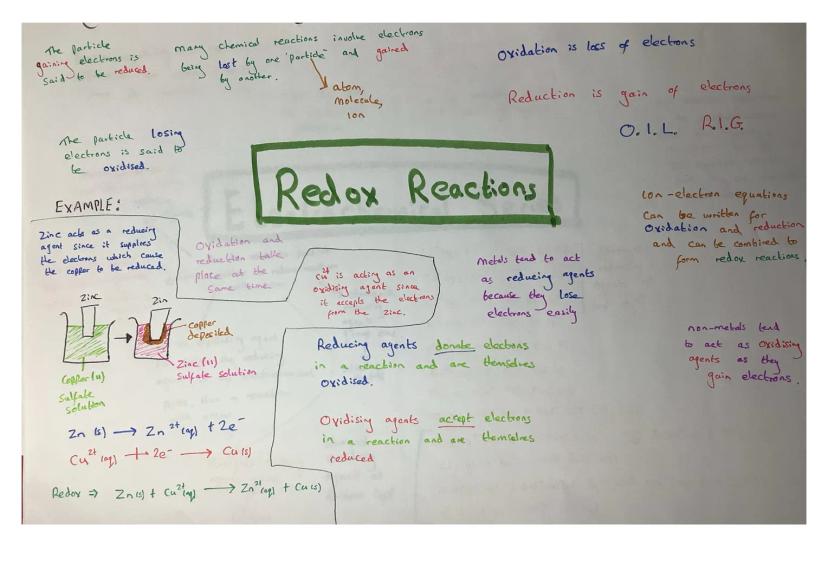 The particle
gaining electrons is
said to be reduced.
Many chemical reactions involve electrons
being lost by one 'particle' and gained
by another.
atom,
molecule,
ion
Oxidation is loss of electrons
Reduction is gain of electrons
O.I.L. R.I.G.
The particle losing
electrons is said to
be oxidised.
Redox Reactions
Ion-electron equations
can be written for
oxidation and reduction
and can be combined to
form redox reactions.
EXAMPLE:
Zinc acts as a reducing
agent since it supplies
the electrons which cause
the copper to be reduced.
Oxidation and
reduction take
place at the
same time.
Cu²⁺ is acting as an
oxidising agent since
it accepts the electrons
from the zinc.
Metals tend to act
as reducing agents
because they lose
electrons easily
Zinc
Zin
copper
deposited
Zinc(II)
sulfate solution
Copper(II)
sulfate
solution
Reducing agents donate electrons
in a reaction and are themselves
oxidised.
non-metals tend
to act as oxidising
agents as they
gain electrons.
Oxidising agents accept electrons
in a reaction and are themselves
reduced
Zn (s) → Zn²⁺(aq) + 2e⁻
Cu²⁺(aq) + 2e⁻ → Cu(s)
Redox ⇒ Zn(s) + Cu²⁺(aq) → Zn²⁺(aq) + Cu(s)